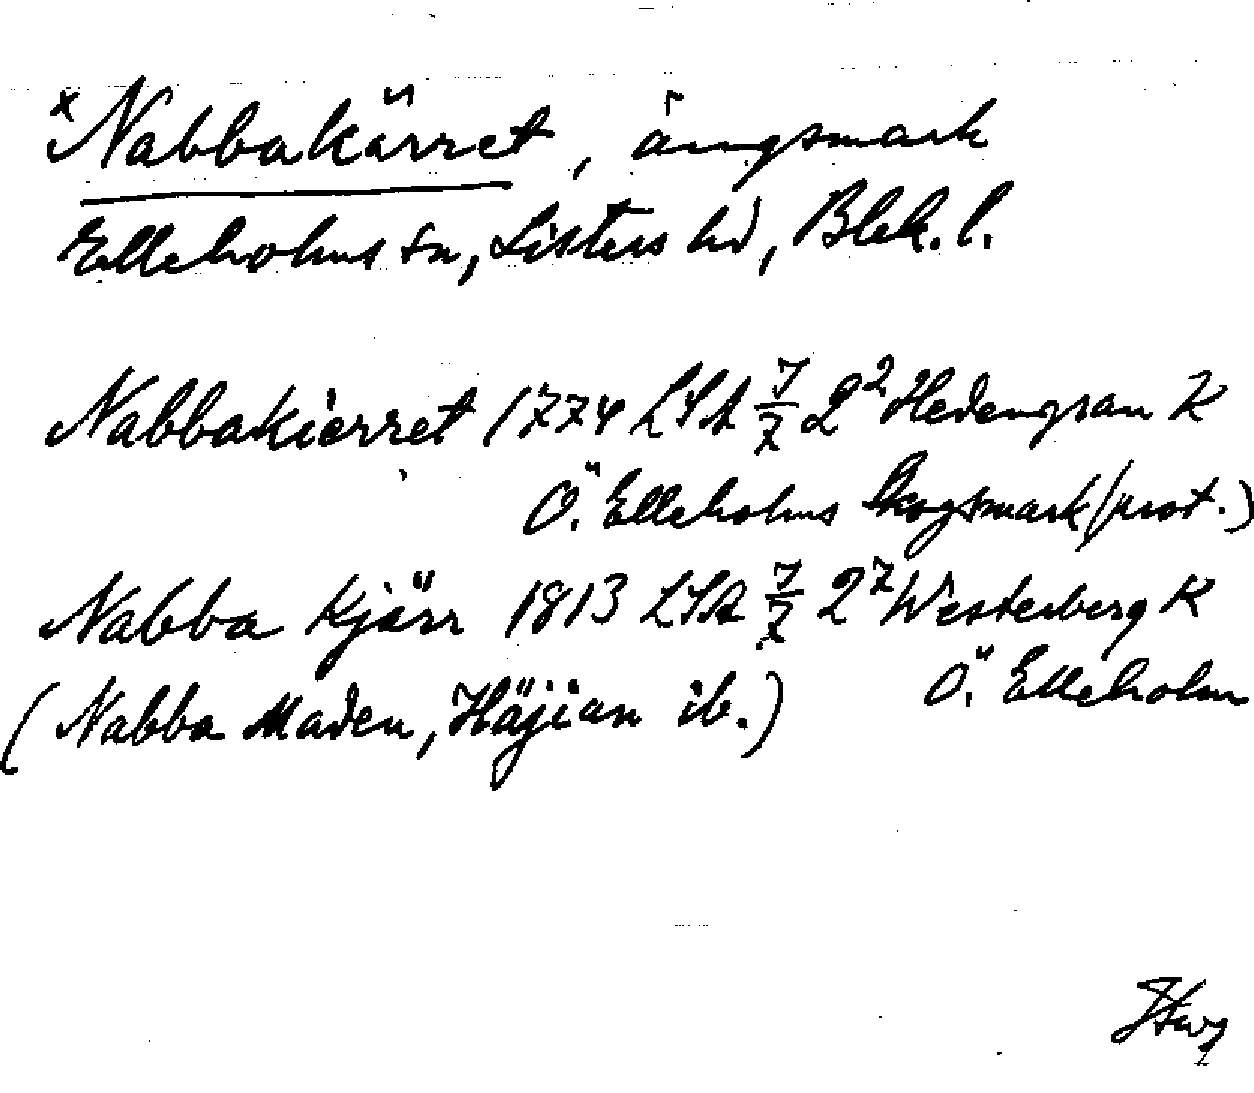 x Nabbakärret, ängsmark
Elleholms sn, Listers hd, Blek. l.
Nabbakierret 1774 LSA 7/7 2² Hedengran K
Ö. Elleholms Skogsmark (prot.)
Nabba Kjärr 1813 LSA 7/7 2⁷ Westerberg K
Ö. Elleholm
(Nabba Maden, Häjian ib.)